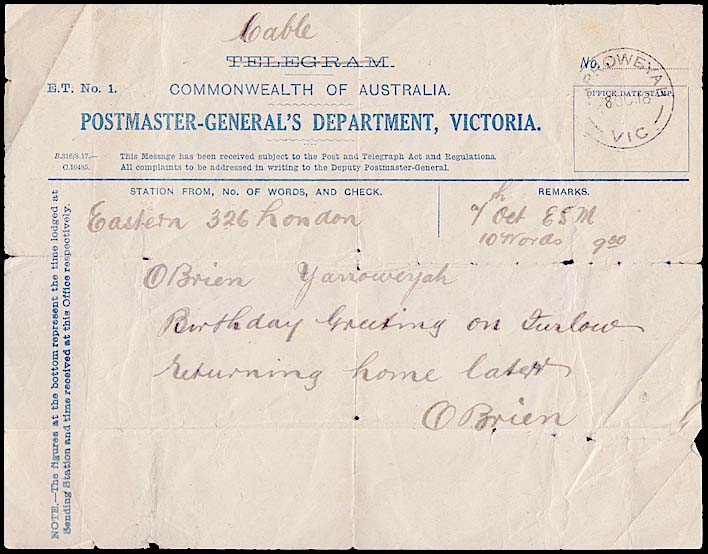 Cable
TELEGRAM.
No.
E.T. No. 1.
COMMONWEALTH OF AUSTRALIA.
OFFICE DATE STAMP
28 OC 18
VIC
POSTMASTER-GENERAL'S DEPARTMENT, VICTORIA.
B.316/8.17.—
C.10485.
This Message has been received subject to the Post and Telegraph Act and Regulations.
All complaints to be addressed in writing to the Deputy Postmaster-General.
STATION FROM, No. OF WORDS, AND CHECK.
REMARKS.
Eastern 326 London
Oct ESM
10 Words 9 00
OBrien Yarroweyah
Birthday Greeting on Furlow
returning home later
OBrien
NOTE.—The figures at the bottom represent the time lodged at
Sending Station and time received at this Office respectively.